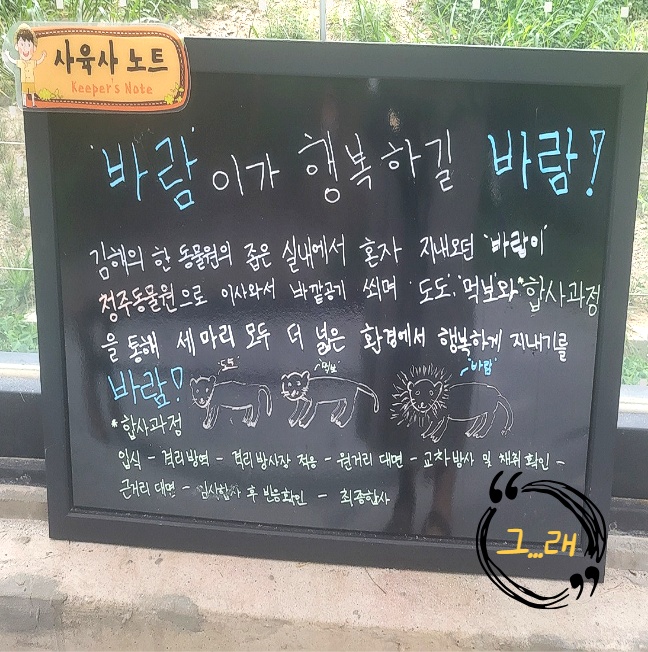 사육사 노트
Keeper's Note
'바람'이가 행복하길 바람!
김해의 한 동물원의 좁은 실내에서 혼자 지내오던 '바람이'
청주동물원으로 이사와서 바깥공기 쐬며 '도도', '먹보'와 *합사과정
을 통해 세 마리 모두 더 넓은 환경에서 행복하게 지내기를
바람!
'도도'
'먹보'
'바람'
*합사과정
입식 - 격리방역 - 격리방사장 적응 - 원거리 대면 - 교차방사 및 채취확인 -
근거리 대면 - 임시합사 후 반응확인 - 최종합사
그...래